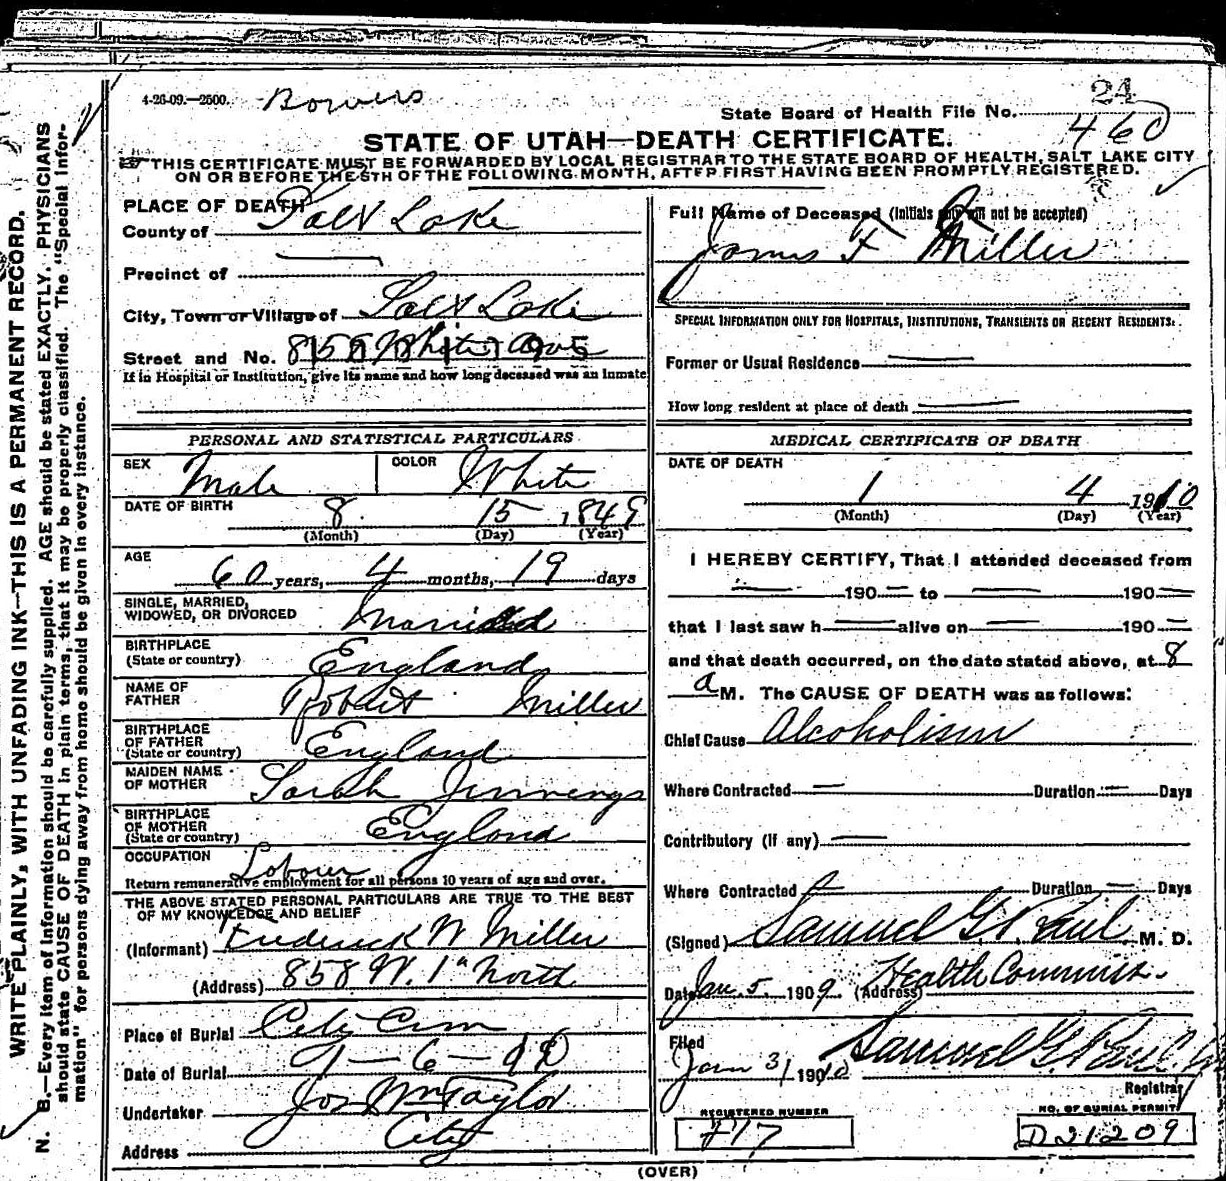 4-26-09.—2500. Bowers
24
State Board of Health File No. 460
STATE OF UTAH—DEATH CERTIFICATE.
THIS CERTIFICATE MUST BE FORWARDED BY LOCAL REGISTRAR TO THE STATE BOARD OF HEALTH, SALT LAKE CITY
ON OR BEFORE THE 5TH OF THE FOLLOWING MONTH, AFTER FIRST HAVING BEEN PROMPTLY REGISTERED.
WRITE PLAINLY, WITH UNFADING INK—THIS IS A PERMANENT RECORD.
N. B.—Every item of information should be carefully supplied. AGE should be stated EXACTLY. PHYSICIANS
should state CAUSE OF DEATH in plain terms, that it may be properly classified. The "Special Infor-
mation" for persons dying away from home should be given in every instance.
PLACE OF DEATH
County of Salt Lake
Precinct of —
City, Town or Village of Salt Lake
Street and No.
If in Hospital or Institution, give its name and how long deceased was an inmate
PERSONAL AND STATISTICAL PARTICULARS
SEX Male COLOR White
DATE OF BIRTH 8 15 1849
(Month) (Day) (Year)
AGE 60 years, 4 months, 19 days
SINGLE, MARRIED,
WIDOWED, OR DIVORCED Married
BIRTHPLACE
(State or country) England
NAME OF
FATHER Robert Miller
BIRTHPLACE
OF FATHER
(State or country) England
MAIDEN NAME
OF MOTHER Sarah Jennings
BIRTHPLACE
OF MOTHER
(State or country) England
OCCUPATION Labour
Return remunerative employment for all persons 10 years of age and over.
THE ABOVE STATED PERSONAL PARTICULARS ARE TRUE TO THE BEST
OF MY KNOWLEDGE AND BELIEF
(Informant) Frederick W Miller
(Address) 858 W. 1st North
Place of Burial City Cem
Date of Burial
Undertaker Jos Wm Taylor
Address City
Full Name of Deceased (Initials only will not be accepted)
James F Miller
SPECIAL INFORMATION ONLY FOR HOSPITALS, INSTITUTIONS, TRANSIENTS OR RECENT RESIDENTS:
Former or Usual Residence —
How long resident at place of death —
MEDICAL CERTIFICATE OF DEATH
DATE OF DEATH
1 4 1910
(Month) (Day) (Year)
I HEREBY CERTIFY, That I attended deceased from
— 190 — to — 190 —
that I last saw h — alive on — 190 —
and that death occurred, on the date stated above, at 8
a M. The CAUSE OF DEATH was as follows:
Chief Cause Alcoholism
Where Contracted — Duration — Days
Contributory (if any) —
Where Contracted — Duration — Days
(Signed) Samuel G. Paul M. D.
Date Jan. 5. 1909 (Address) Health Commiss.
Filed
Jan 31 1910 Samuel G. Paul
Registrar
REGISTERED NUMBER
NO. OF BURIAL PERMIT
D21209
(OVER)